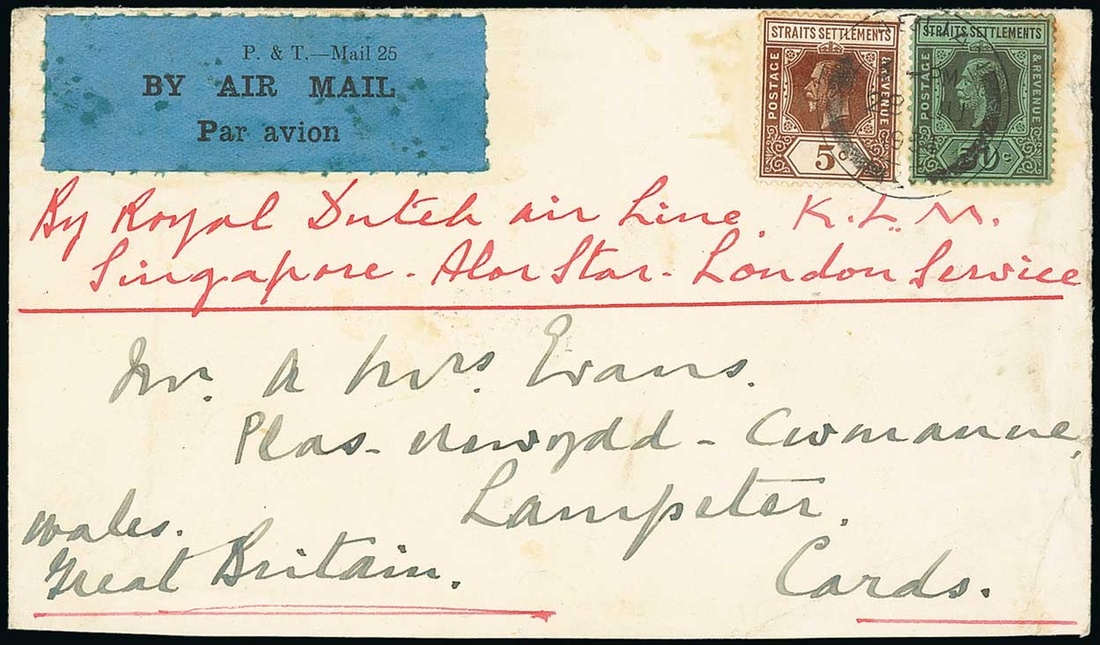 P. & T.—Mail 25
BY AIR MAIL
Par avion
STRAITS SETTLEMENTS
POSTAGE
& REVENUE
5 c
STRAITS SETTLEMENTS
POSTAGE
& REVENUE
50 c
By Royal Dutch air Line. K.L.M.
Singapore - Alor Star - London Service
Mr. & Mrs. Evans.
Plas - newydd - Cwmanne,
Lampeter.
Wales.
Great Britain.
Cards.